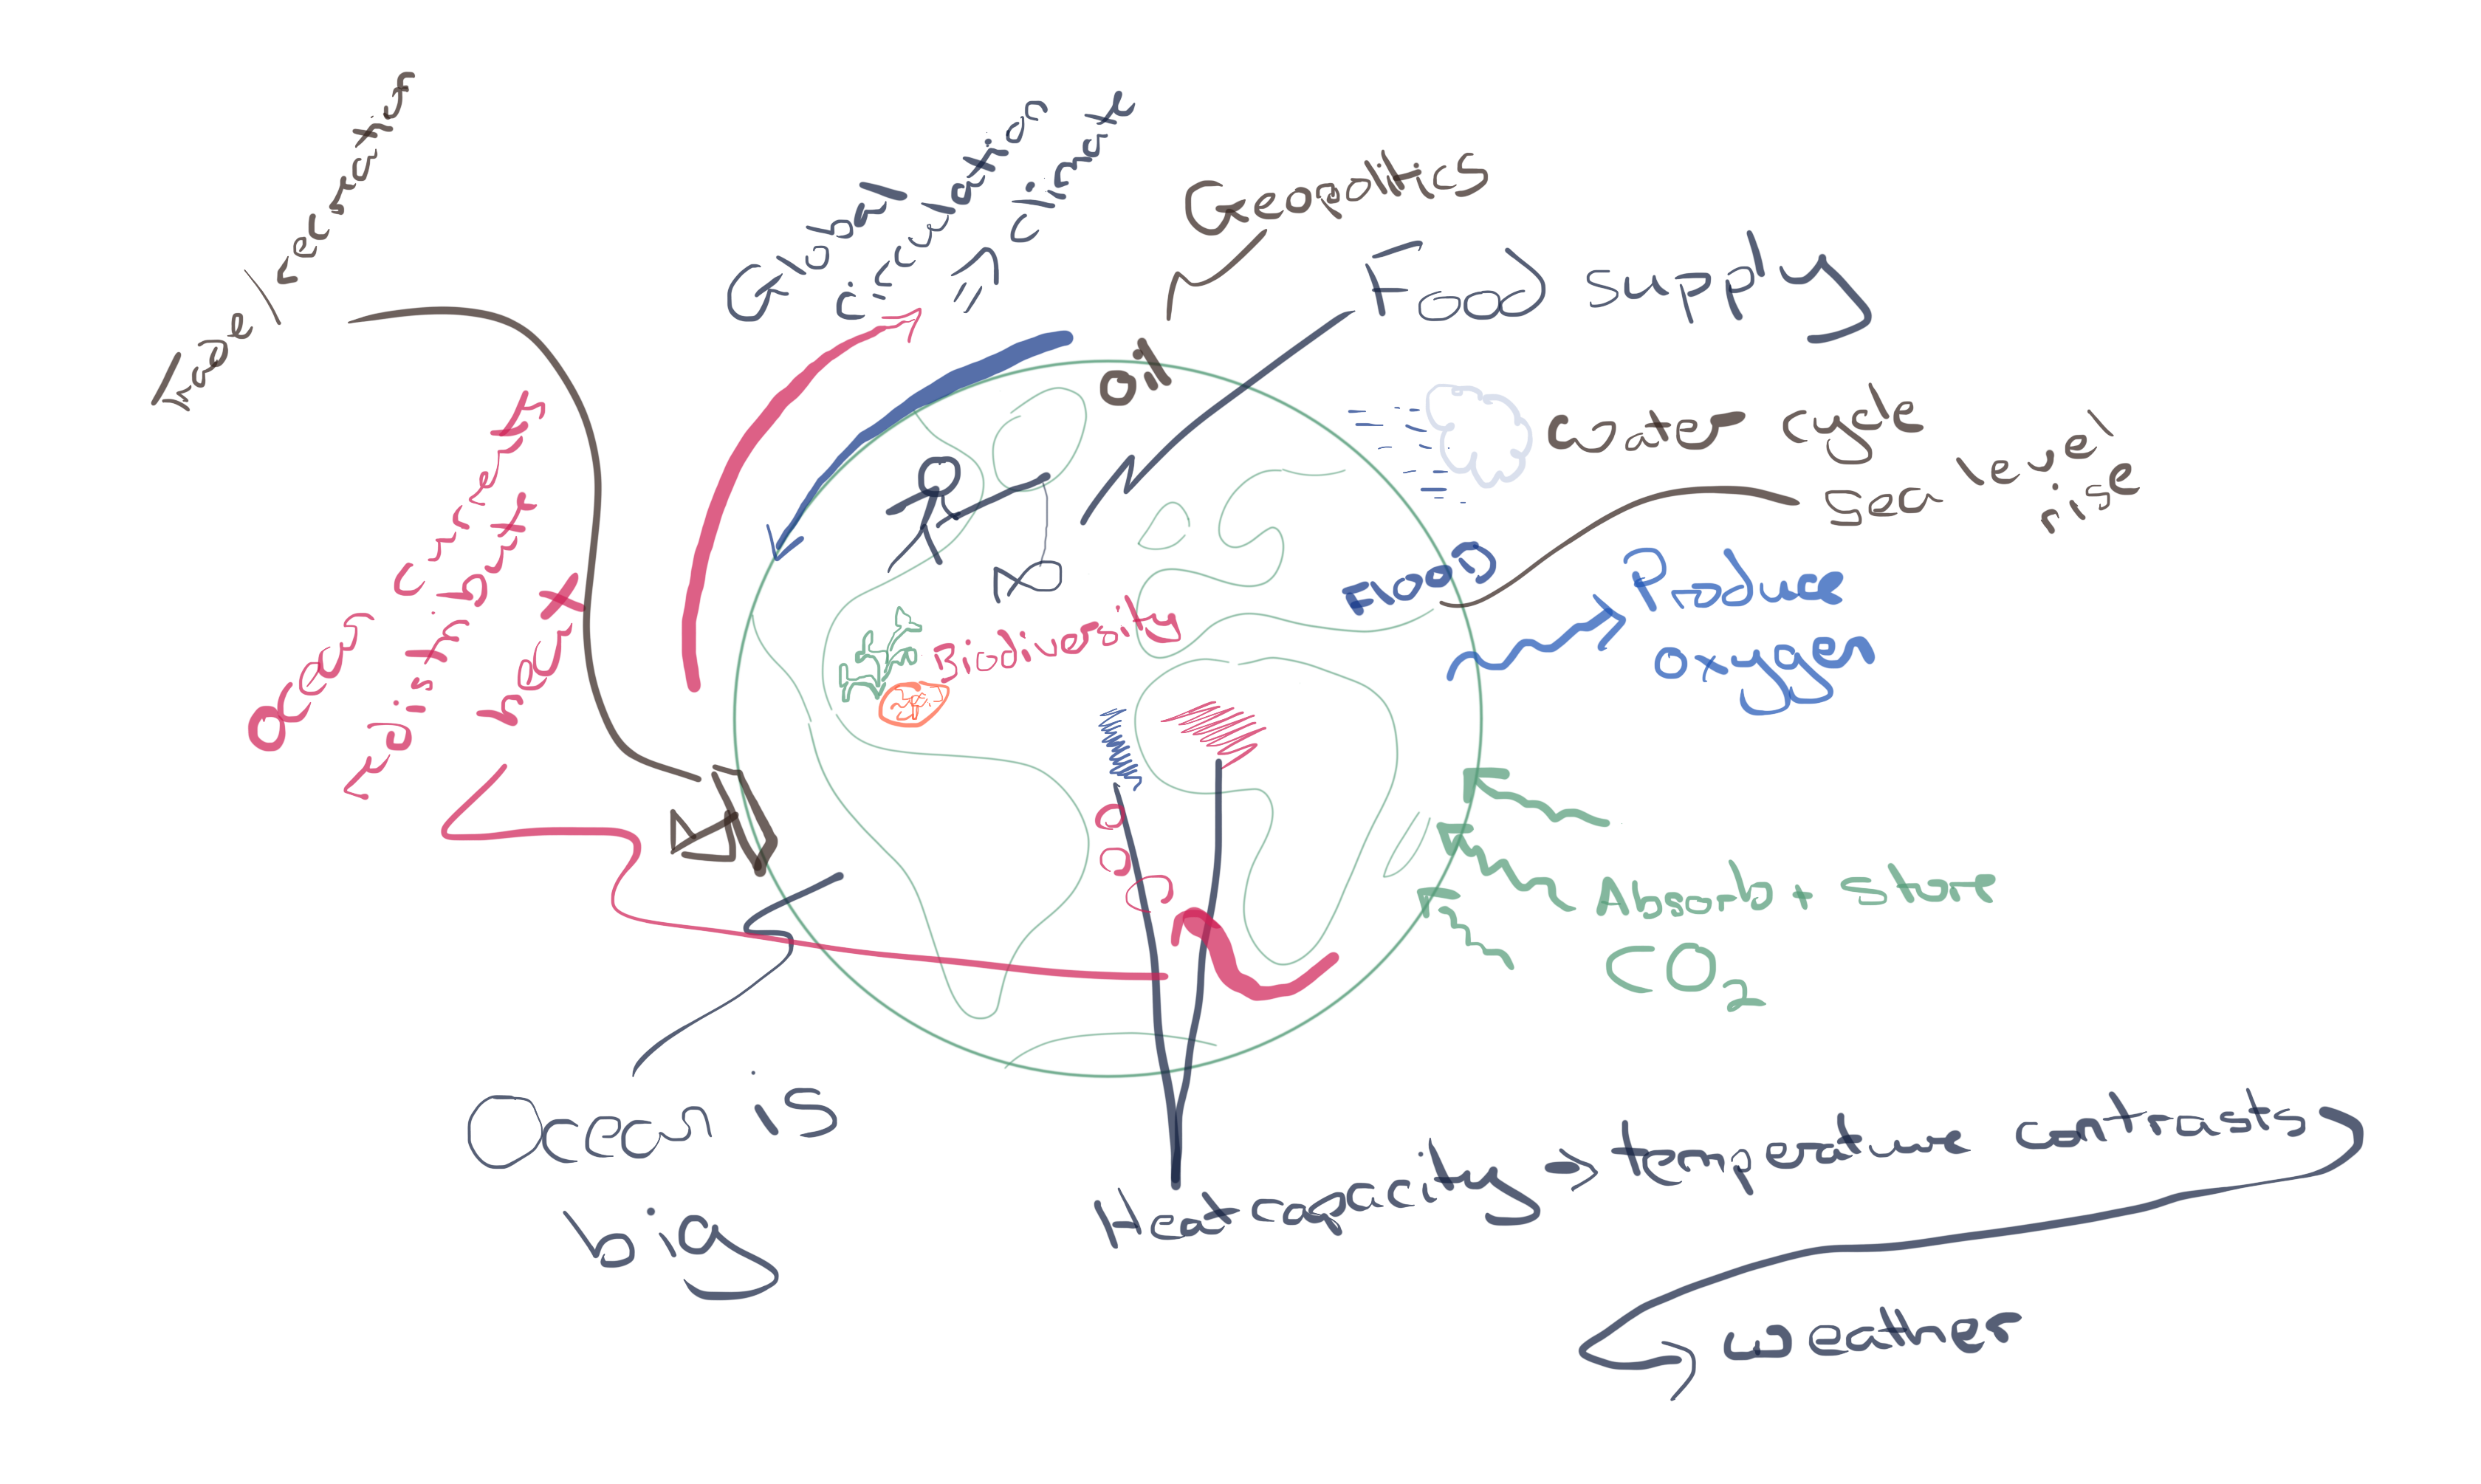 Travel/recreation
Global
circulation
=> climate
Geopolitics
Oil
Food supply
Water cycle
Sea level
rise
Flood
Produce
oxygen
Ocean currents
Distribute
heat
Biodiversity
Absorb + Store
CO2
Ocean is
big
Heat capacity → temperature contrasts
→ weather